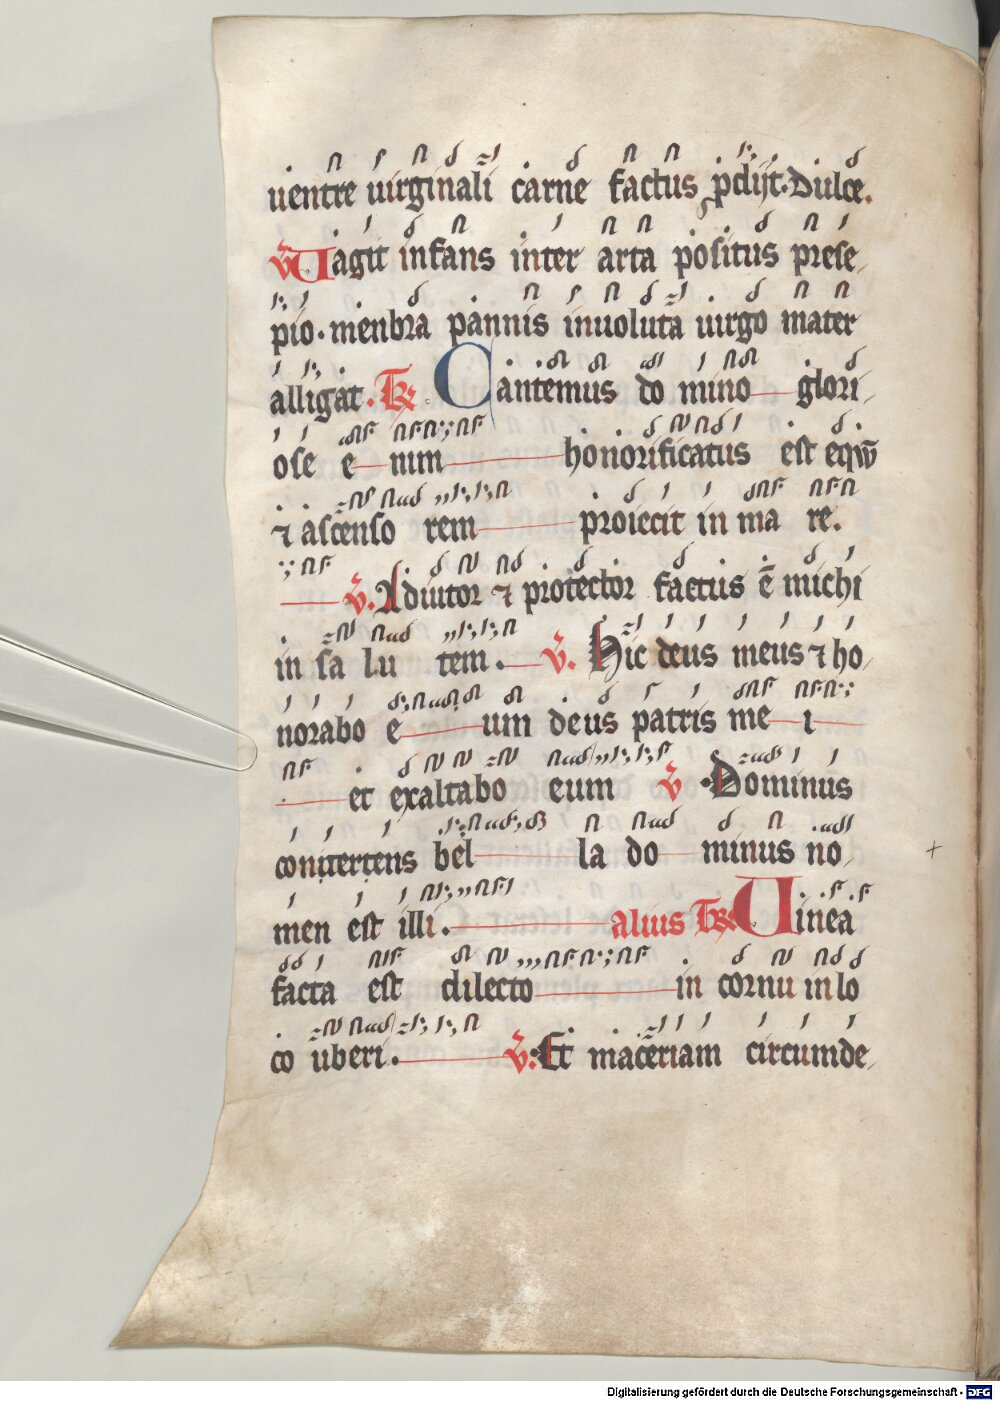 uentre uirginali carne factus ꝓdijt. Dulce.
v̄ Uagit infans inter arta positus prese
pio. menbra pannis inuoluta uirgo mater
alligat. Tr Cantemus do mino glori
ose e nim honorificatus est eqū
⁊ ascenso rem proiecit in ma re.
v̄. Adiutor ⁊ protector factus ē michi
in sa lu tem. v̄. Hic deus meus ⁊ ho
norabo e um deus patris me i
et exaltabo eum v̄ Dominus
conterens bel la do minus no
men est illi. alius Tr Uinea
facta est dilecto in cornu in lo
co uberi. v̄: Et maceriam circumde
Digitalisierung gefördert durch die Deutsche Forschungsgemeinschaft - DFG